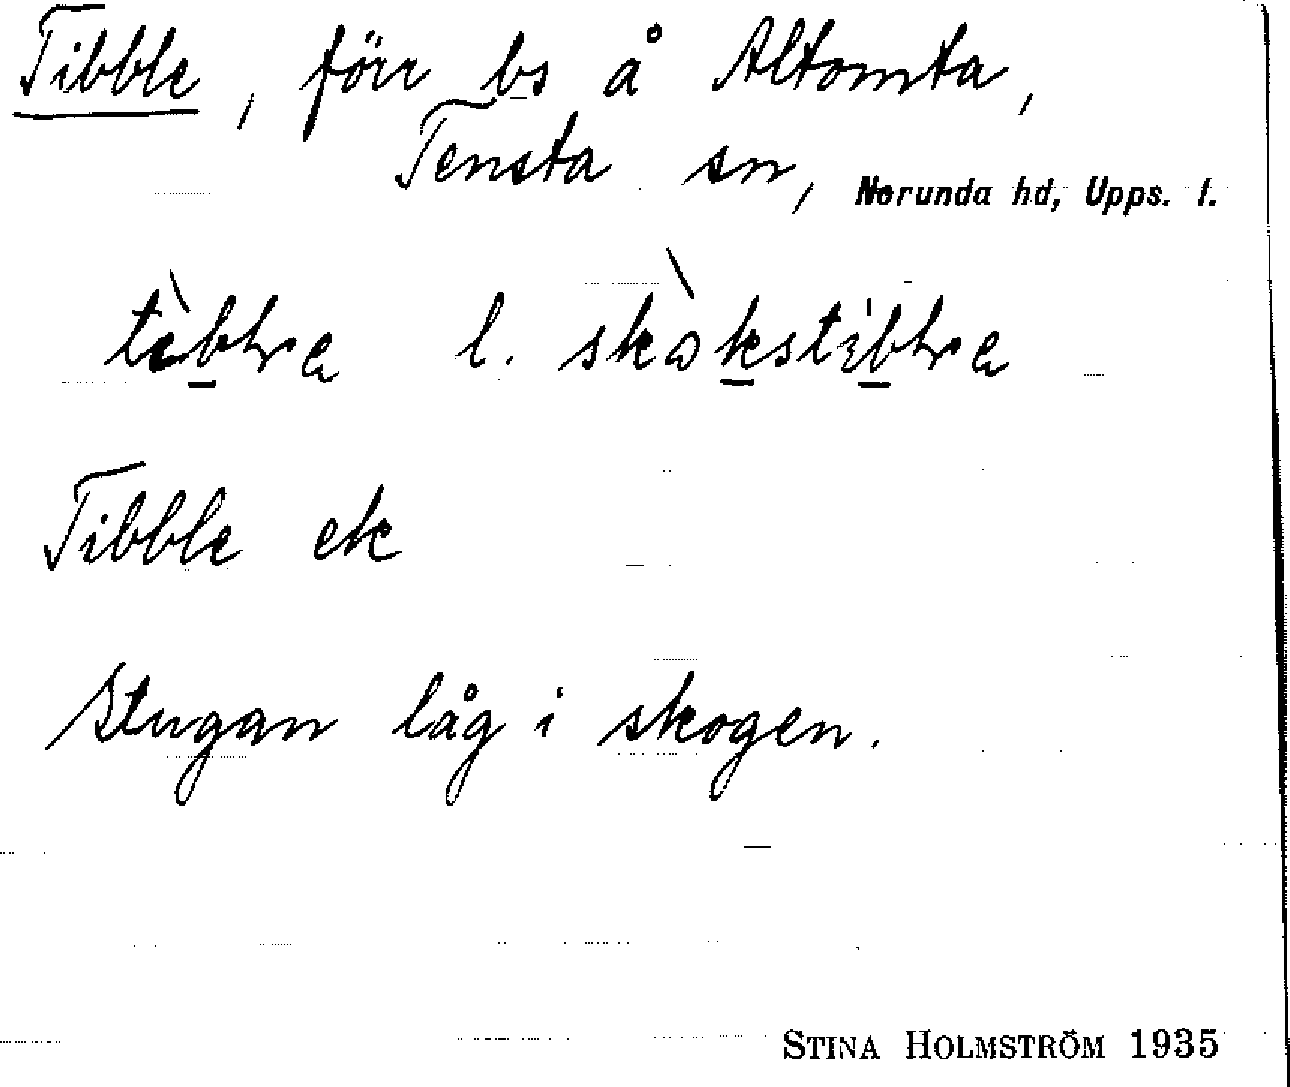 Tibble, förr bs å Altomta,
Tensta sn, Norunda hd, Upps. l.
l.
Tibble ek
Stugan låg i skogen.
STINA HOLMSTRÖM 1935